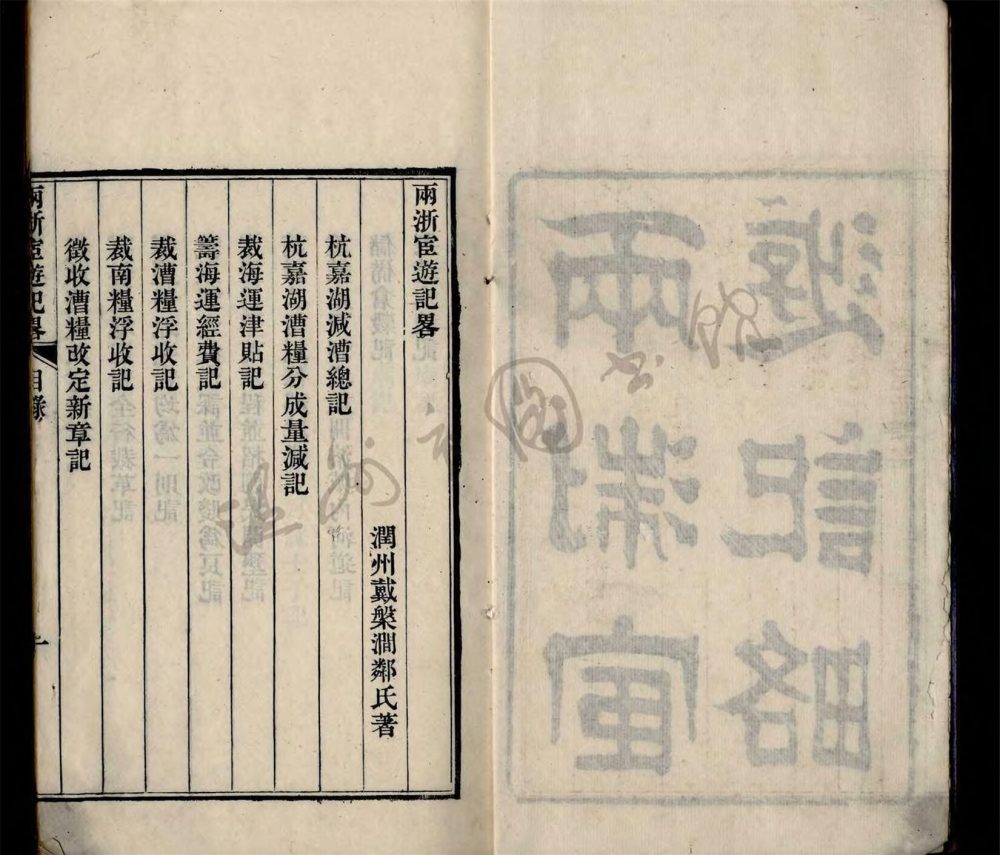 兩浙宦遊記略
兩浙宦遊記畧
潤州戴槃澗鄰氏著
杭嘉湖減漕總記
杭嘉湖漕糧分成量減記
裁海運津貼記
籌海運經費記
裁漕糧浮收記
裁南糧浮收記
徵收漕糧改定新章記
兩浙宦遊記畧 目錄 一
溫州市圖书館